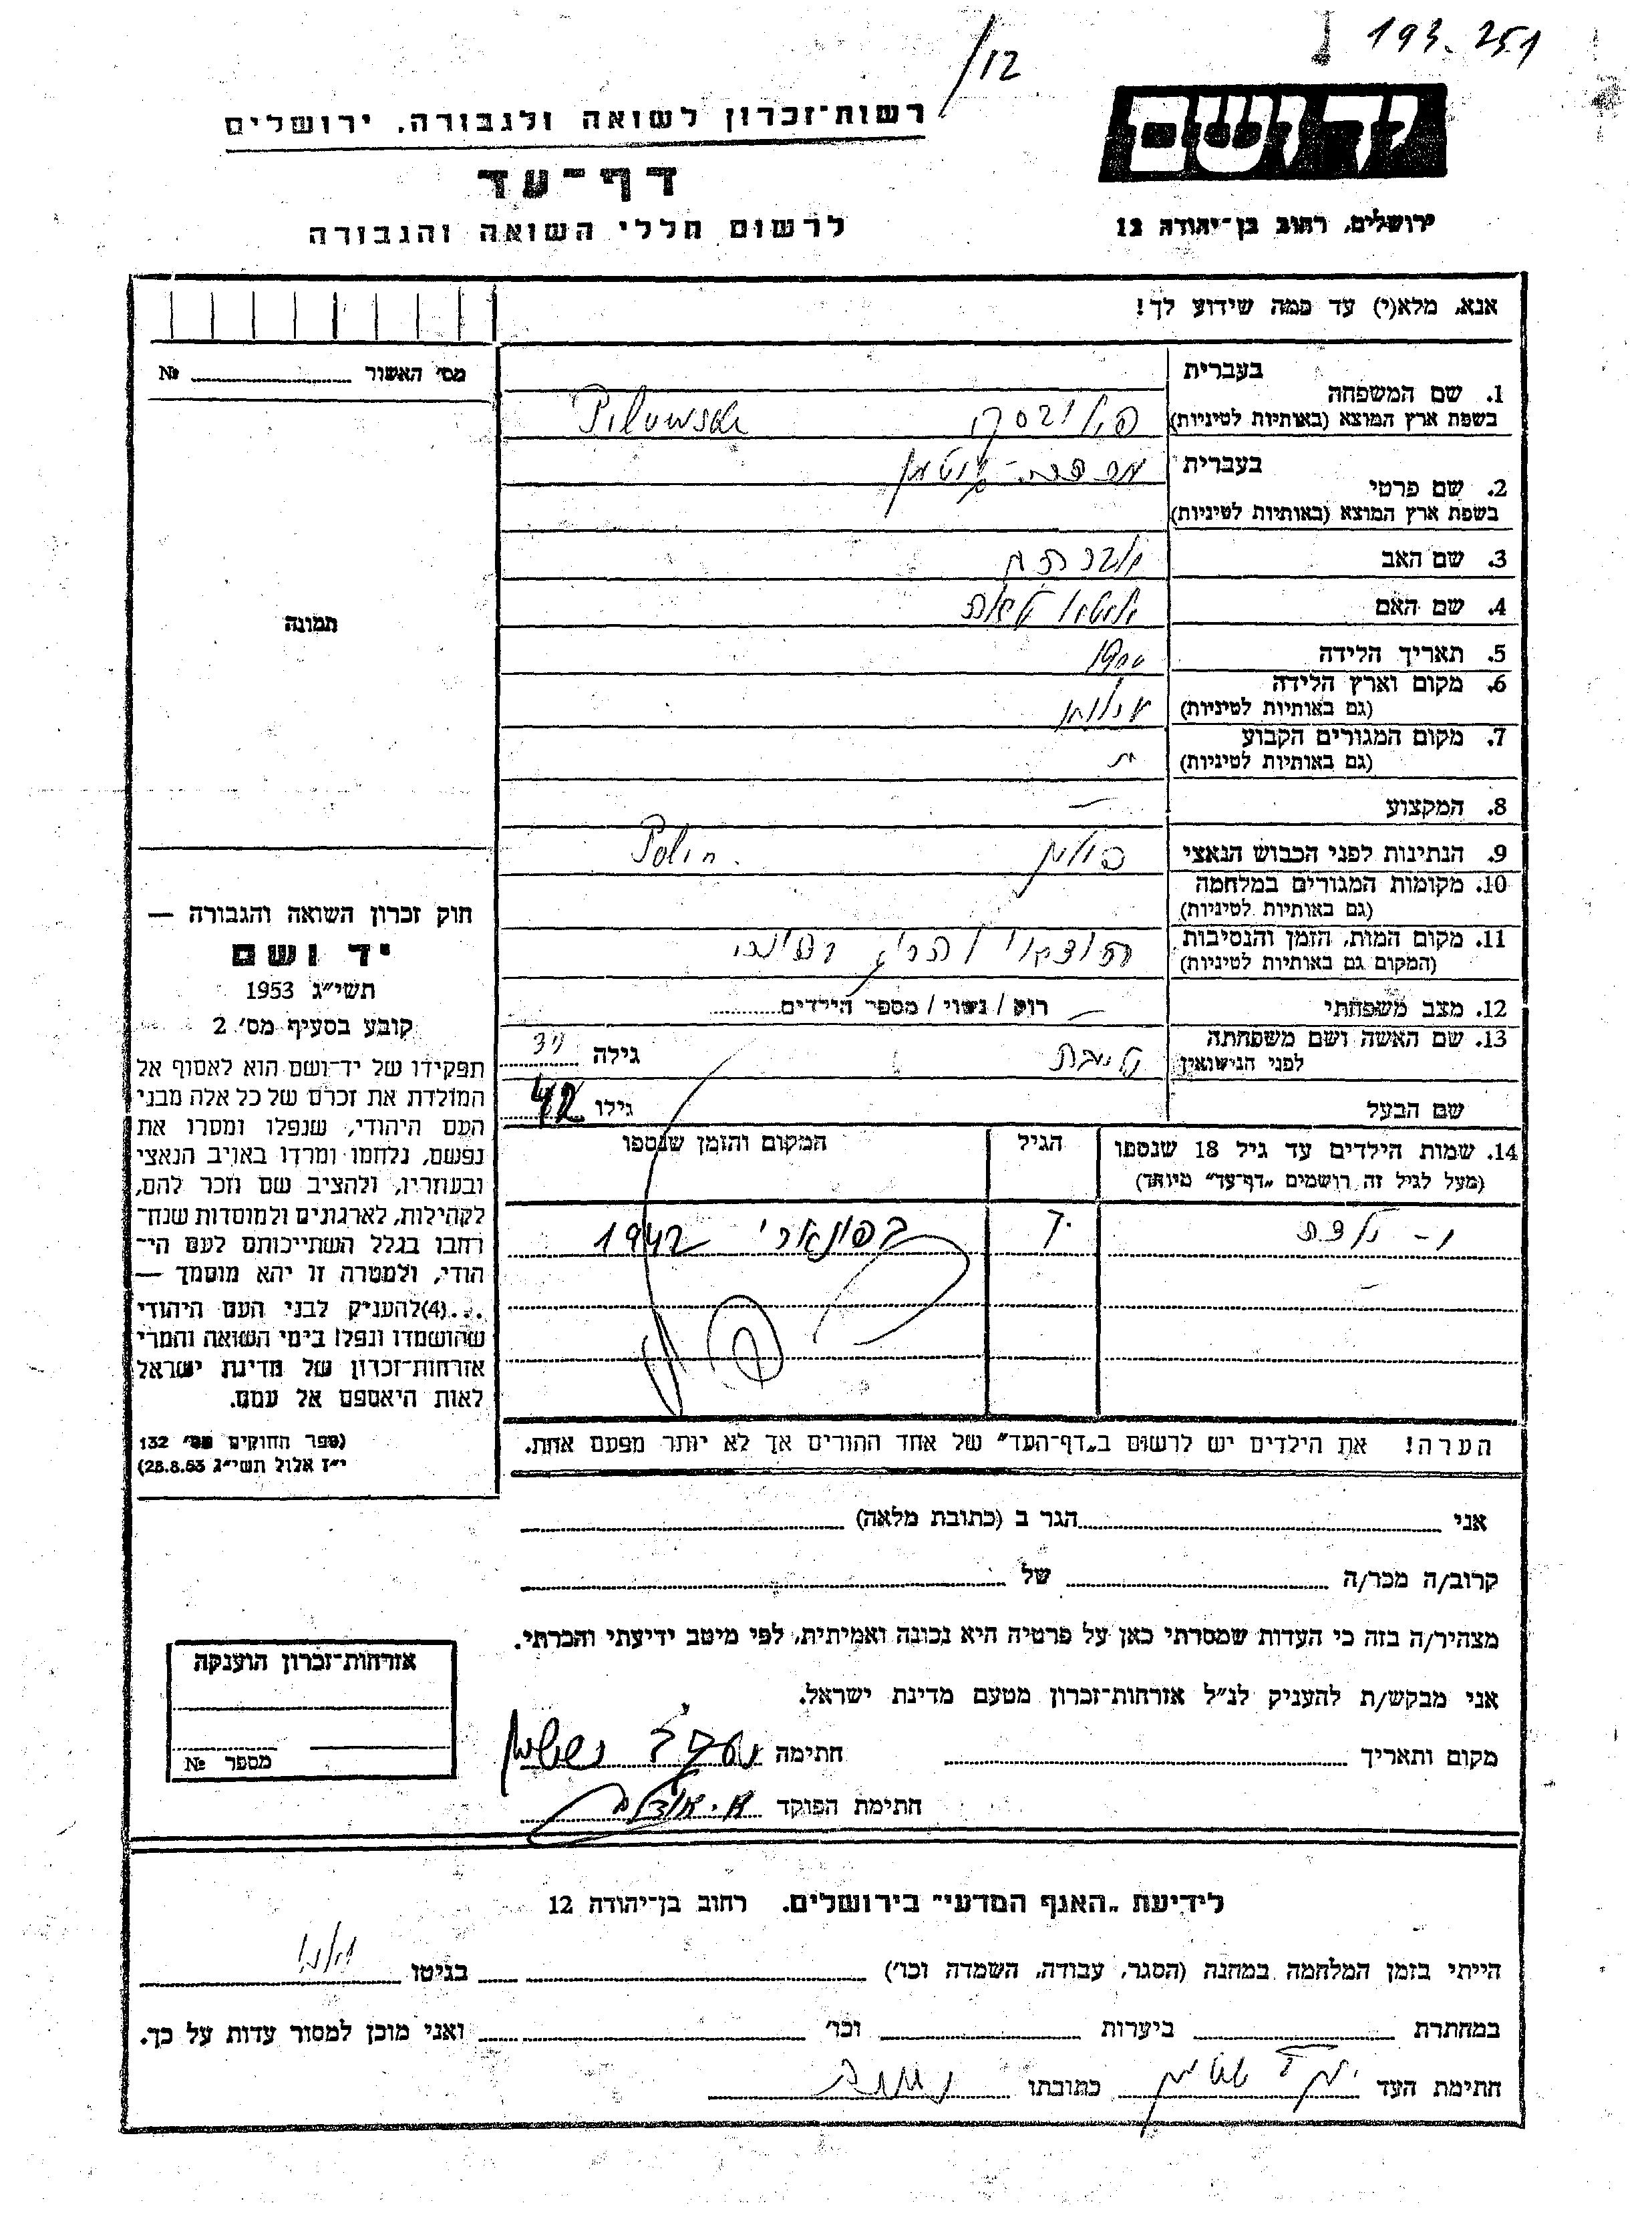 193.251
/12
יד ושם
רשות־זכרון לשואה ולגבורה, ירושלים
דף־עד
לרשום חללי השואה והגבורה
ירושלים, רחוב בן־יהודה 12
אנא, מלא(י) עד כמה שידוע לך!
מס׳ האשור № 
1. שם המשפחה
בעברית
בשפת ארץ המוצא (באותיות לטיניות)
פילובסקי Pilowski
2. שם פרטי
בעברית
בשפת ארץ המוצא (באותיות לטיניות)
3. שם האב אברהם
4. שם האם
5. תאריך הלידה 1900
6. מקום וארץ הלידה
(גם באותיות לטיניות)
7. מקום המגורים הקבוע
(גם באותיות לטיניות)
8. המקצוע —
9. הנתינות לפני הכבוש הנאצי פולין Polin
10. מקומות המגורים במלחמה
(גם באותיות לטיניות)
11. מקום המות, הזמן והנסיבות
(המקום גם באותיות לטיניות)
12. מצב משפחתי רוק / נשוי / מספר הילדים
13. שם האשה ושם משפחתה
לפני הנישואין
גילה
שם הבעל
גילו 42
14. שמות הילדים עד גיל 18 שנספו
(מעל לגיל זה רושמים „דף־עד״ מיוחד)
הגיל
המקום והזמן שנספו
בפונארי 1942
הערה! את הילדים יש לרשום ב„דף־העד״ של אחד ההורים אך לא יותר מפעם אחת.
תמונה
חוק זכרון השואה והגבורה —
יד ושם
תשי״ג 1953
קובע בסעיף מס׳ 2
תפקידו של יד־ושם הוא לאסוף אל
המולדת את זכרם של כל אלה מבני
העם היהודי, שנפלו ומסרו את
נפשם, נלחמו ומרדו באויב הנאצי
ובעוזריו, ולהציב שם וזכר להם,
לקהילות, לארגונים ולמוסדות שנח־
רבו בגלל השתייכותם לעם הי־
הודי, ולמטרה זו יהא מוסמך —
...(4)להעניק לבני העם היהודי
שהושמדו ונפלו בימי השואה והמרי
אזרחות־זכרון של מדינת ישראל
לאות היאספם אל עמם.
(ספר החוקים מס׳ 132
י״ז אלול תשי״ג 28.8.53)
אני הגר ב (כתובת מלאה)
קרוב/ה מכר/ה של
מצהיר/ה בזה כי העדות שמסרתי כאן על פרטיה היא נכונה ואמיתית, לפי מיטב ידיעתי והכרתי.
אני מבקש/ת להעניק לנ״ל אזרחות־זכרון מטעם מדינת ישראל.
מקום ותאריך חתימה
חתימת הפוקד
אזרחות־זכרון הוענקה
מספר №
לידיעת „האגף המדעי״ בירושלים. רחוב בן־יהודה 12
הייתי בזמן המלחמה במחנה (הסגר, עבודה, השמדה וכו׳) בגיטו
במחתרת ביערות וכו׳ ואני מוכן למסור עדות על כך.
חתימת העד כתובתו